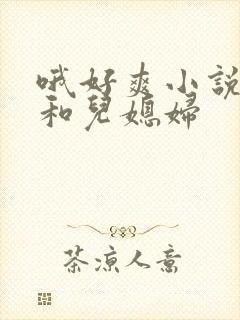 哦好爽小說
和兒媳婦
茶凉人意